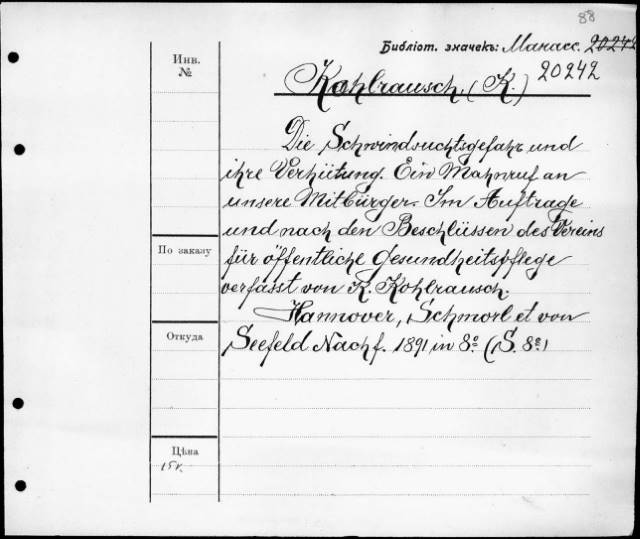 88
Библіот. значекъ: Манасс. 20242
20242
Инв.
№
Kohlrausch. (K.)
Die Schwindsuchtsgefahr und
ihre Verhütung. Ein Mahnruf an
unsere Mitbürger. Im Auftrage
und nach den Beschlüssen des Vereins
По заказу
für öffentliche Gesundheitspflege
verfasst von K. Kohlrausch.
Hannover, Schmorl et von
Откуда
Seefeld Nachf. 1891 in 8º (S. 8º)
Цѣна
15 к.